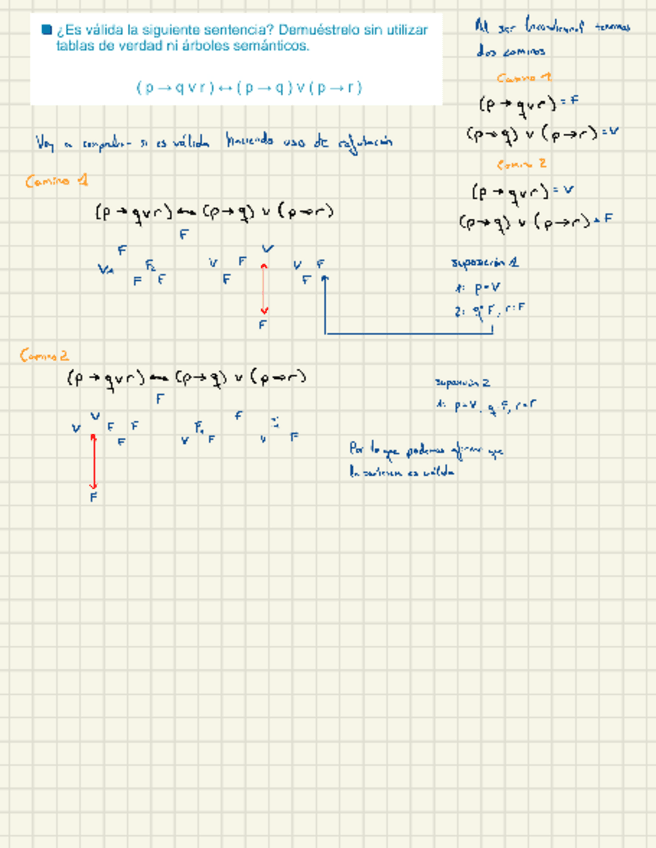 ¿Es válida la siguiente sentencia? Demuéstrelo sin utilizar
tablas de verdad ni árboles semánticos.
( p → q v r ) ↔ ( p → q ) v ( p → r )
Al ser bicondicional tenemos
dos caminos
Camino 1
(p → q v r) = F
(p → q) v (p → r) = V
Camino 2
(p → q v r) = V
(p → q) v (p → r) = F
Voy a comprobar si es válida haciendo uso de refutación
Camino 1
(p → q v r) ↔ (p → q) v (p → r)
F
F V
V F V F V F
F F F F
F
suposición 1
1: p = V
2: q = F, r = F
Camino 2
(p → q v r) ↔ (p → q) v (p → r)
F
V F
V F F F
F V F V F
F
suposición 2
1: p = V, q = F, r = F
Por lo que podemos afirmar que
la sentencia es válida